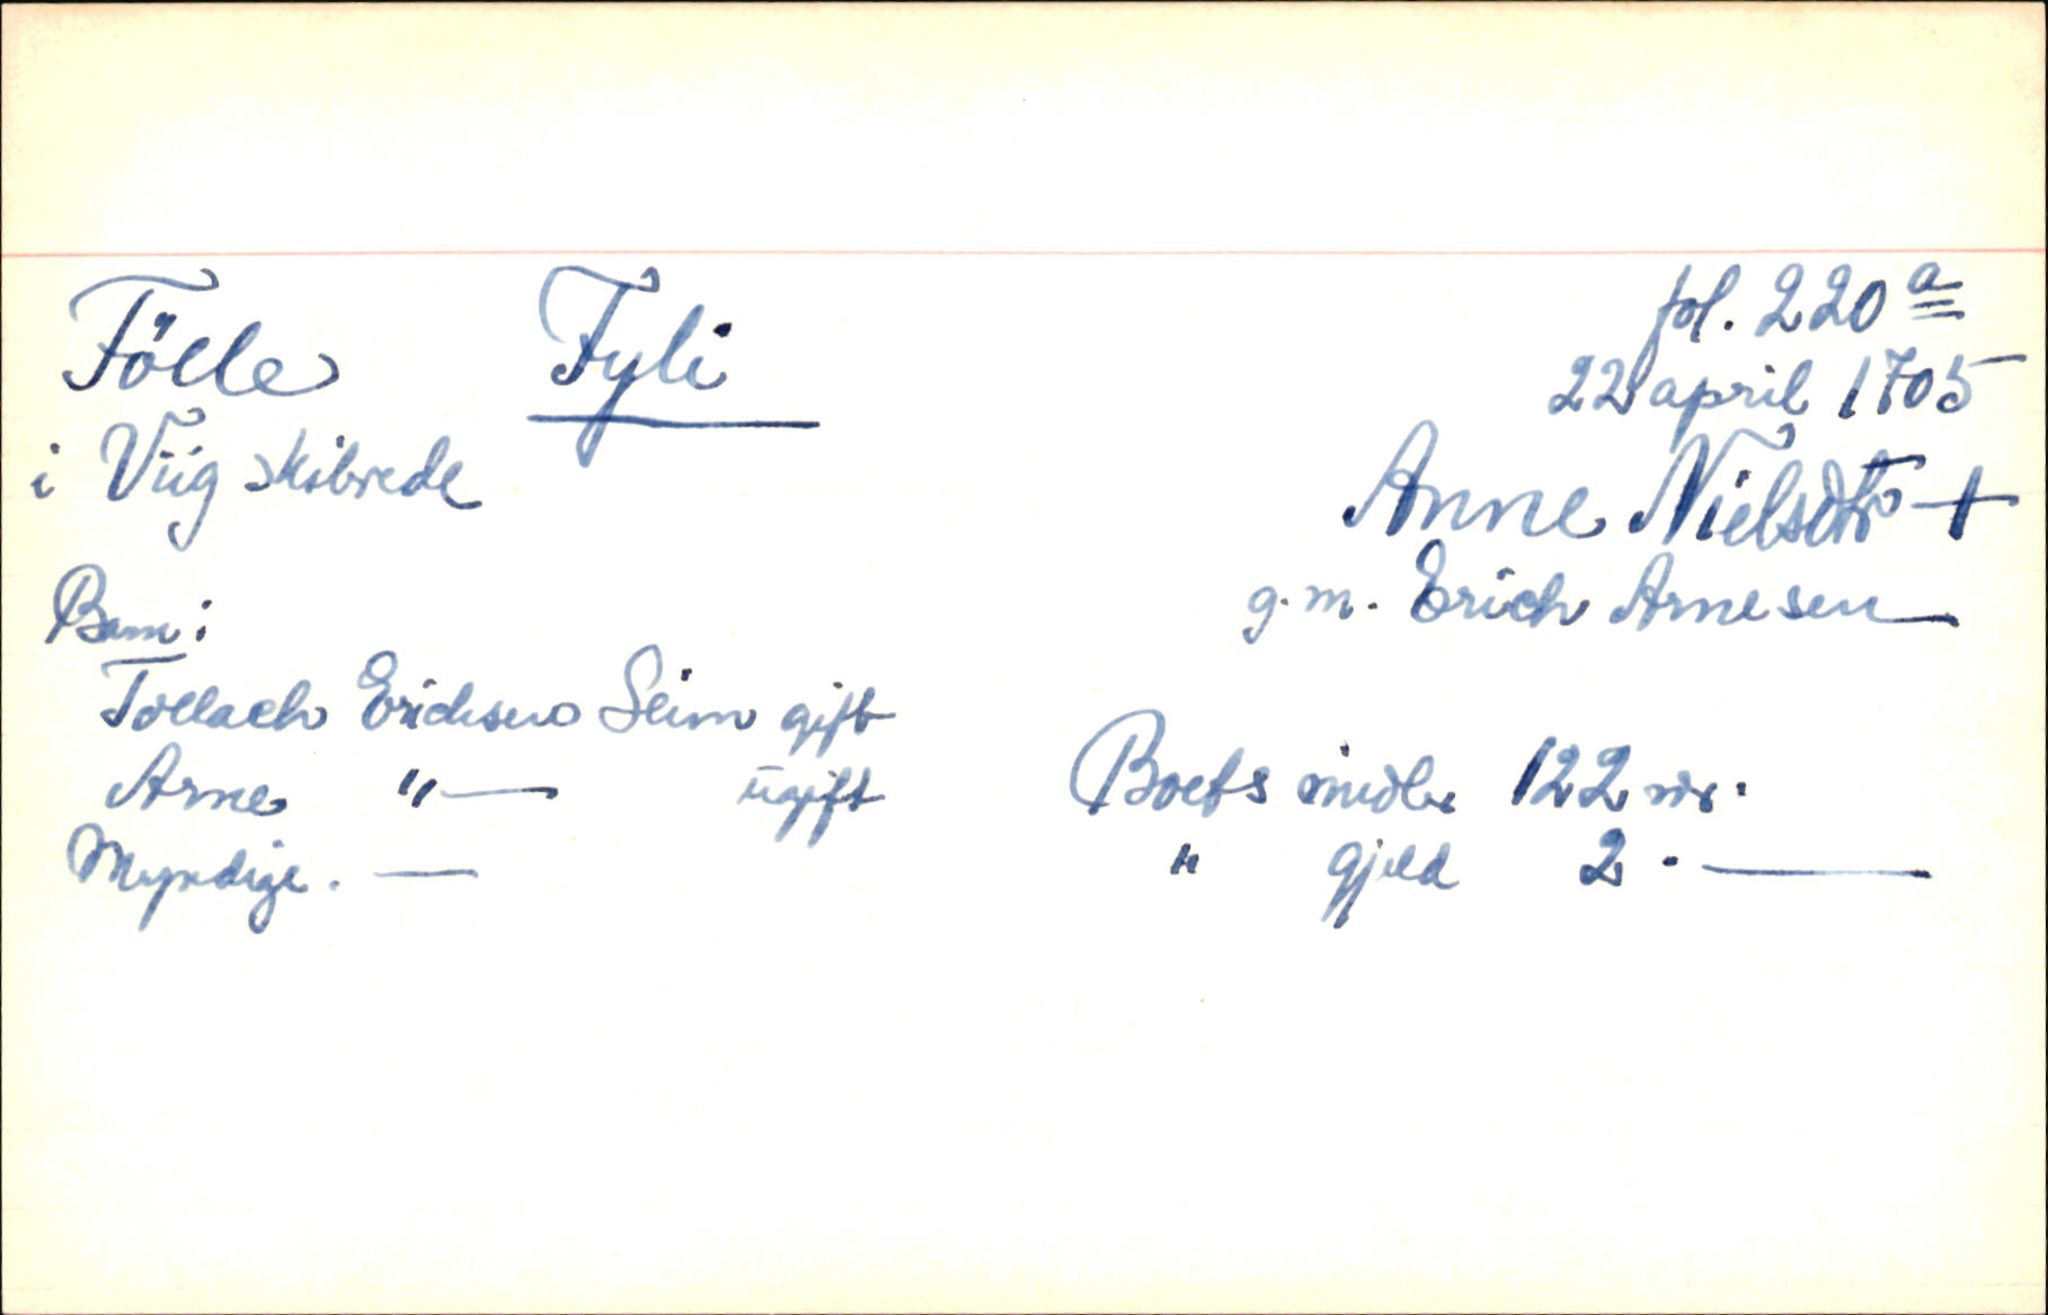 Fölle Fyli fol. 220 a
22 april 1705
i Viig skibrede
Anne Nielsdtr +
g.m. Erich Arnesen
Barn:
Tollach Erichsen Seim gift
Arne " — ugift
Boets midler 122 rdr.
Myndige. —
" gjeld 2 . —